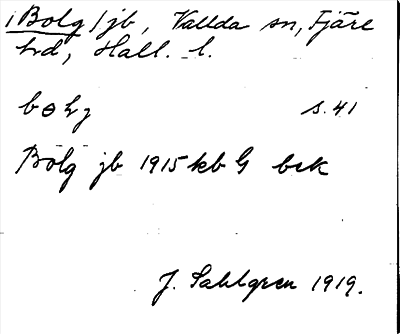 i Bolg / jb, Vallda sn, Fjäre
hd, Hall. l.
bɵlj s. 41
Bolg jb 1915 kb G bek
J. Sahlgren 1919.